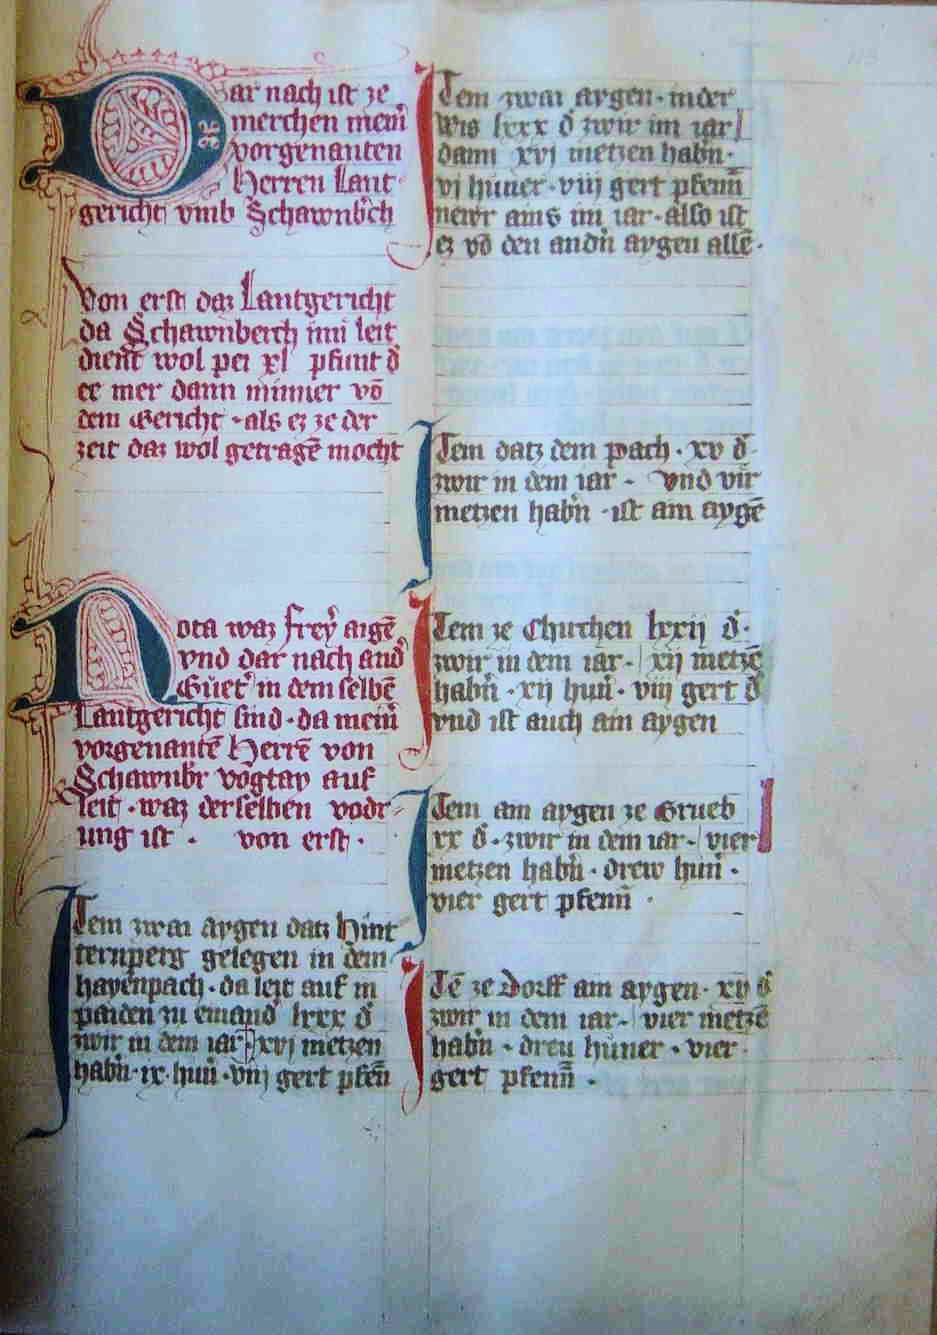 Dar nach ist ze
merchen mein̄
vorgenanten
Herren Lant
gericht vmb Schawnb̓ch
Von erst daz Lantgericht
da Schawnberch inn leit
dient wol pei xl pfunt d̓
ee mer dann minner vō
dem Gericht · als ez ze der
zeit daz wol getragē mocht
Nota waz frey̓ aigē
vnd dar nach and̓
Guͤet̓ in dem selbē
Lantgericht sind · da mein̄
vorgenantē Herrē von
Schawnb̓r vogtay auf
leit · waz derselben vodr
ung ist · von erst ·
Item zwai aygen datz Hint
ternperg gelegen in dem
hayenpach · da leit auf in
paiden zu einand̓ lxxx d̓
zwir in dem iar xvj metzen
hab̓n · ix · hun̄ · viij gert pfen̄
Item zwai aygen · in der
Wis lxxx d̓ zwir im iar
dann xvj metzen hab̓n ·
vj hüner · viij gert pfenn̄
newr ains im iar · also ist
ez vō den andn̓ aygen allē ·
Item datz dem pach · xv d̓ ·
zwir in dem iar · vnd vir̄
metzen hab̓n · ist am aygē
Item ze Churchen lxxij d̓ ·
zwir in dem iar · xij metzē
hab̓n · xij hun̄ · viij gert d̓
vnd ist auch ain aygen
Item am aygen ze Grueb
xx d̓ · zwir in dem iar · vier
metzen hab̓n · drew hun̄ ·
vier gert pfenn̄ ·
Itē ze Dorff am aygen · xij d̓
zwir in dem iar · vier metzē
hab̓n · dreu hüner · vier ·
gert pfenn̄ ·